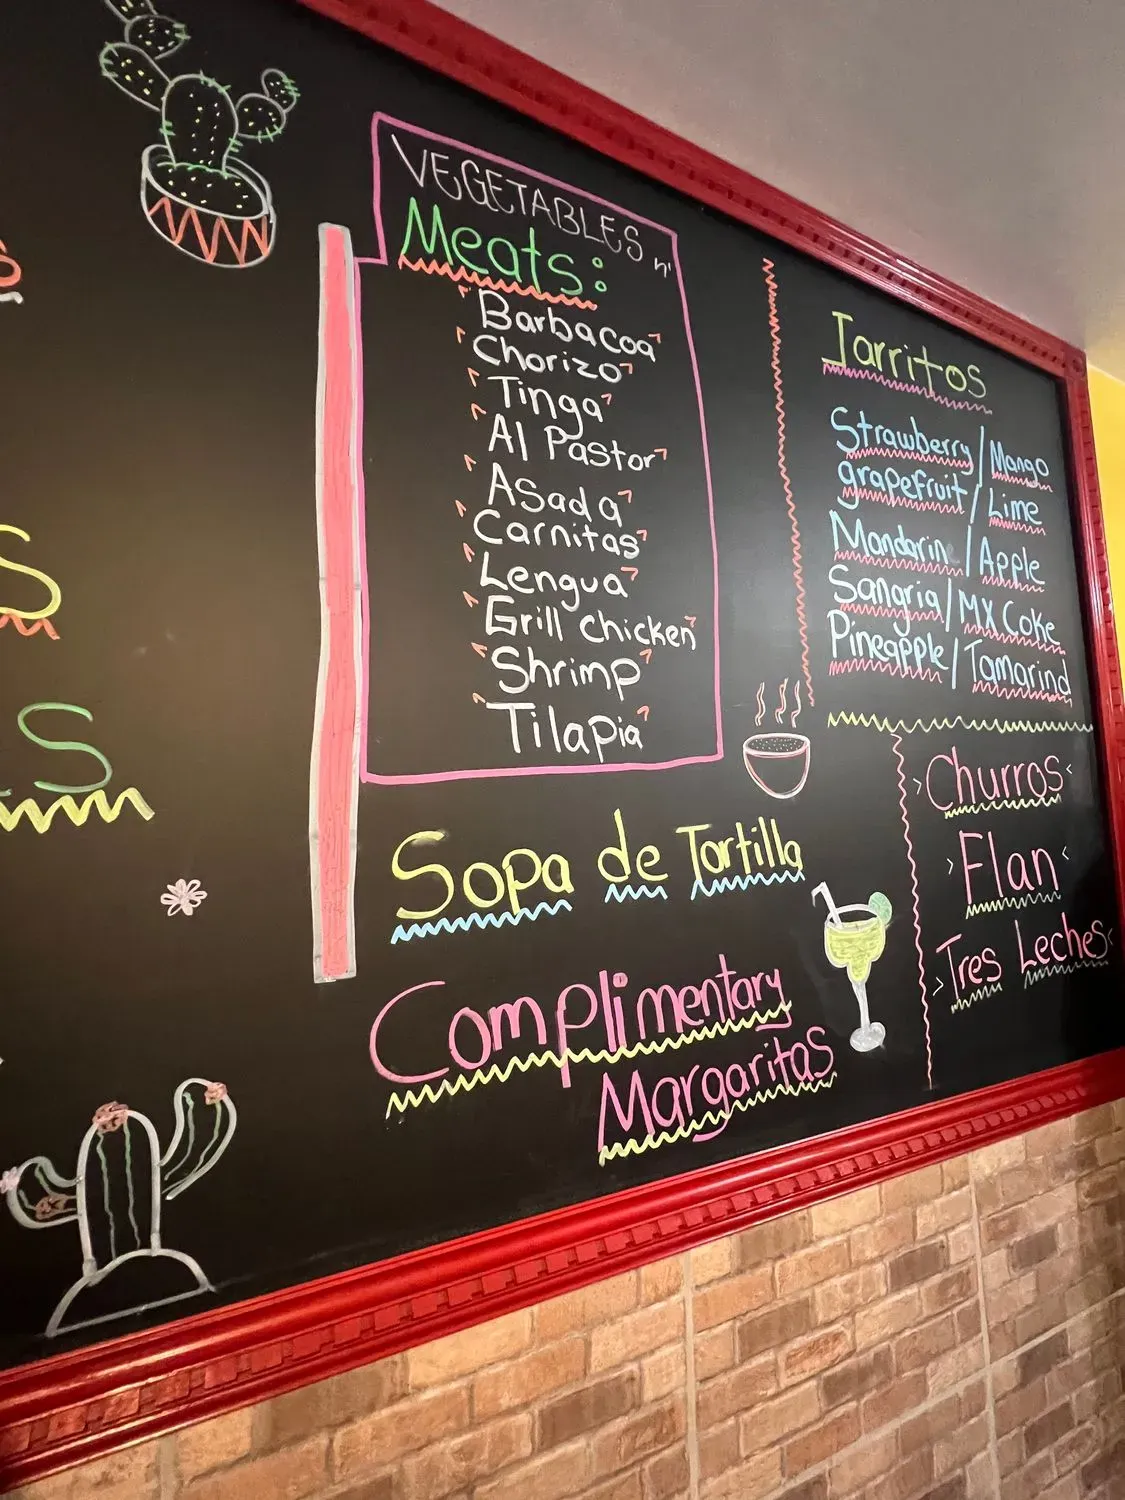 VEGETABLES n'
Meats:
Barbacoa
Chorizo
Tinga
Al Pastor
Asada
Carnitas
Lengua
Grill chicken
Shrimp
Tilapia
Sopa de Tortilla
Complimentary
Margaritas
Jarritos
Strawberry / Mango
grapefruit / Lime
Mandarin / Apple
Sangria / MX Coke
Pineapple / Tamarind
>Churros<
>Flan<
>Tres Leches<